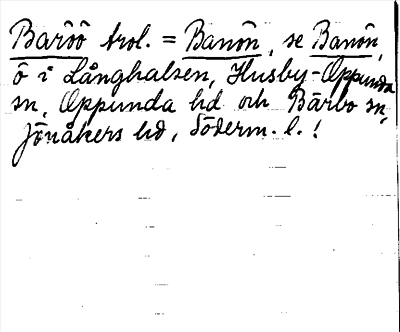 Baröö trol. = Banön, se Banön,
ö i Långhalsen, Husby-Oppunda
sn, Oppunda hd och Bärbo sn,
Jönåkers hd, Söderm. l. !